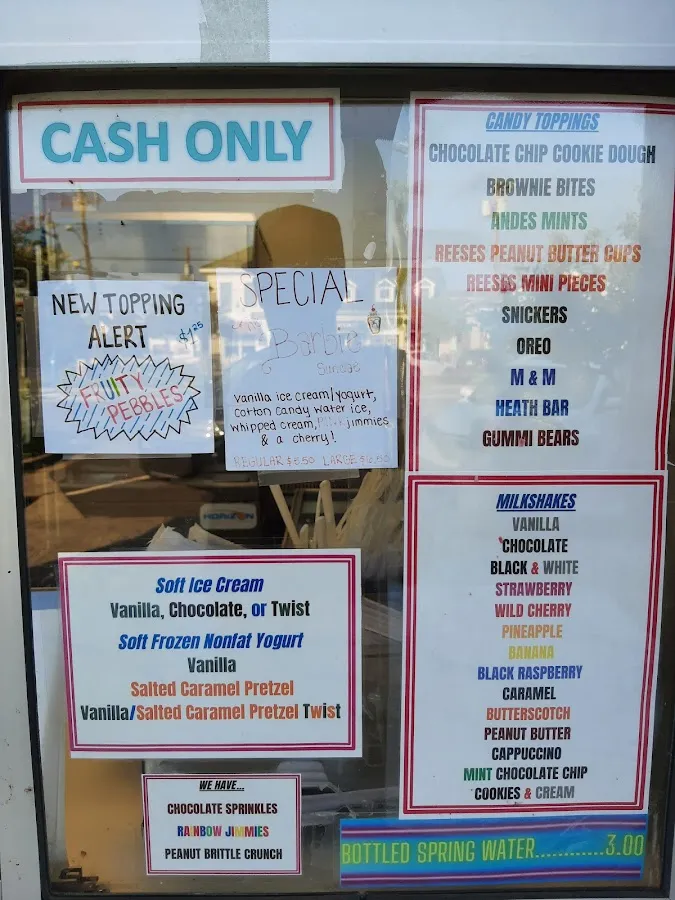 CASH ONLY
NEW TOPPING
ALERT
$1.25
FRUITY
PEBBLES
SPECIAL
Barbie
Sundae
vanilla ice cream/yogurt,
cotton candy water ice,
whipped cream, PINK jimmies
& a cherry!
REGULAR $5.50 LARGE $6.50
HORIZON
Soft Ice Cream
Vanilla, Chocolate, or Twist
Soft Frozen Nonfat Yogurt
Vanilla
Salted Caramel Pretzel
Vanilla/Salted Caramel Pretzel Twist
WE HAVE...
CHOCOLATE SPRINKLES
RAINBOW JIMMIES
PEANUT BRITTLE CRUNCH
CANDY TOPPINGS
CHOCOLATE CHIP COOKIE DOUGH
BROWNIE BITES
ANDES MINTS
REESES PEANUT BUTTER CUPS
REESES MINI PIECES
SNICKERS
OREO
M & M
HEATH BAR
GUMMI BEARS
MILKSHAKES
VANILLA
CHOCOLATE
BLACK & WHITE
STRAWBERRY
WILD CHERRY
PINEAPPLE
BANANA
BLACK RASPBERRY
CARAMEL
BUTTERSCOTCH
PEANUT BUTTER
CAPPUCCINO
MINT CHOCOLATE CHIP
COOKIES & CREAM
BOTTLED SPRING WATER............3.00